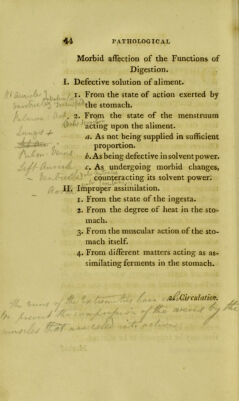 44 PATHOLOGICAL
Morbid affection of the Functions of
Digestion.
I. Defective solution of aliment.
1. From the state of action exerted by
the stomach.
2. From the state of the menstruum
acting upon the aliment.
a. As not being supplied in sufficient
proportion.
b. As being defective in solvent power.
c. As undergoing morbid changes,
counteracting its solvent power.
II. Improper assimilation.
1. From the state of the ingesta.
2. From the degree of heat in the sto-
mach.
3. From the muscular action of the sto-
mach itself.
4. From different matters acting as as-
similating ferments in the stomach.
2d. Circulation.
Lungs +
Left Auricle
The veins of the Extremities have
to prevent the of the by the
muscles that are into action